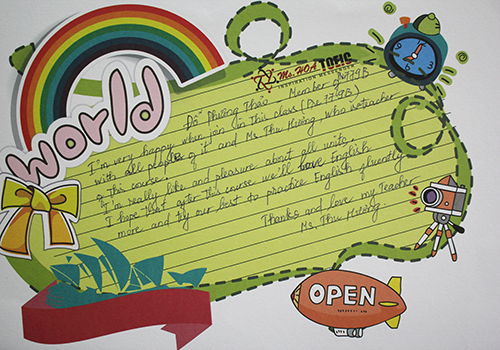 world
Ms. HOA TOEIC
INSPIRATION MESSENGER
Đỗ Phương Thảo Member of 779B
I'm very happy when join in this class (Pre 779B)
with all people of it and Ms Thu Hường who is teacher
of this course.
I'm really like and pleasure about all units
I hope that after this course we'll love English
more and try our best to practice English fluently
Thanks and love my teacher
Ms. Thu Hường.
OPEN